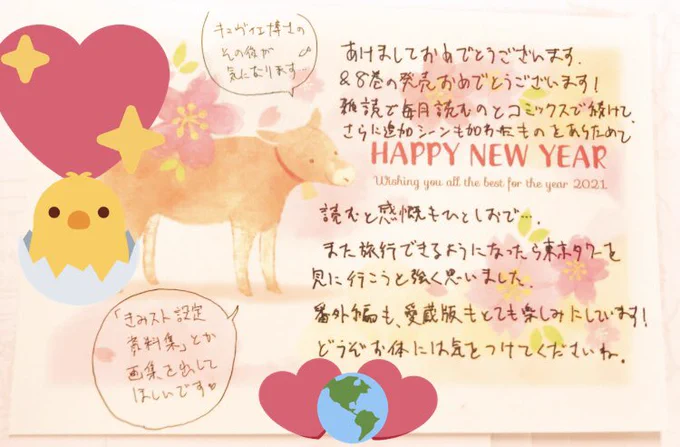 キュヴィエ博士の
その後が
気になります…
あけましておめでとうございます.
&8巻の発売おめでとうございます!
雑誌で毎月読むのとコミックスで続けて、
さらに追加シーンも加わったものをあらためて
HAPPY NEW YEAR
Wishing you all the best for the year 2021.
読むと感慨もひとしおで….
また旅行できるようになったら東京タワーを
見に行こうと強く思いました.
番外編も、愛蔵版もとても楽しみにしています!
どうぞお体には気をつけてくださいね.
「きみスト設定
資料集」とか
画集を出して
ほしいです♡